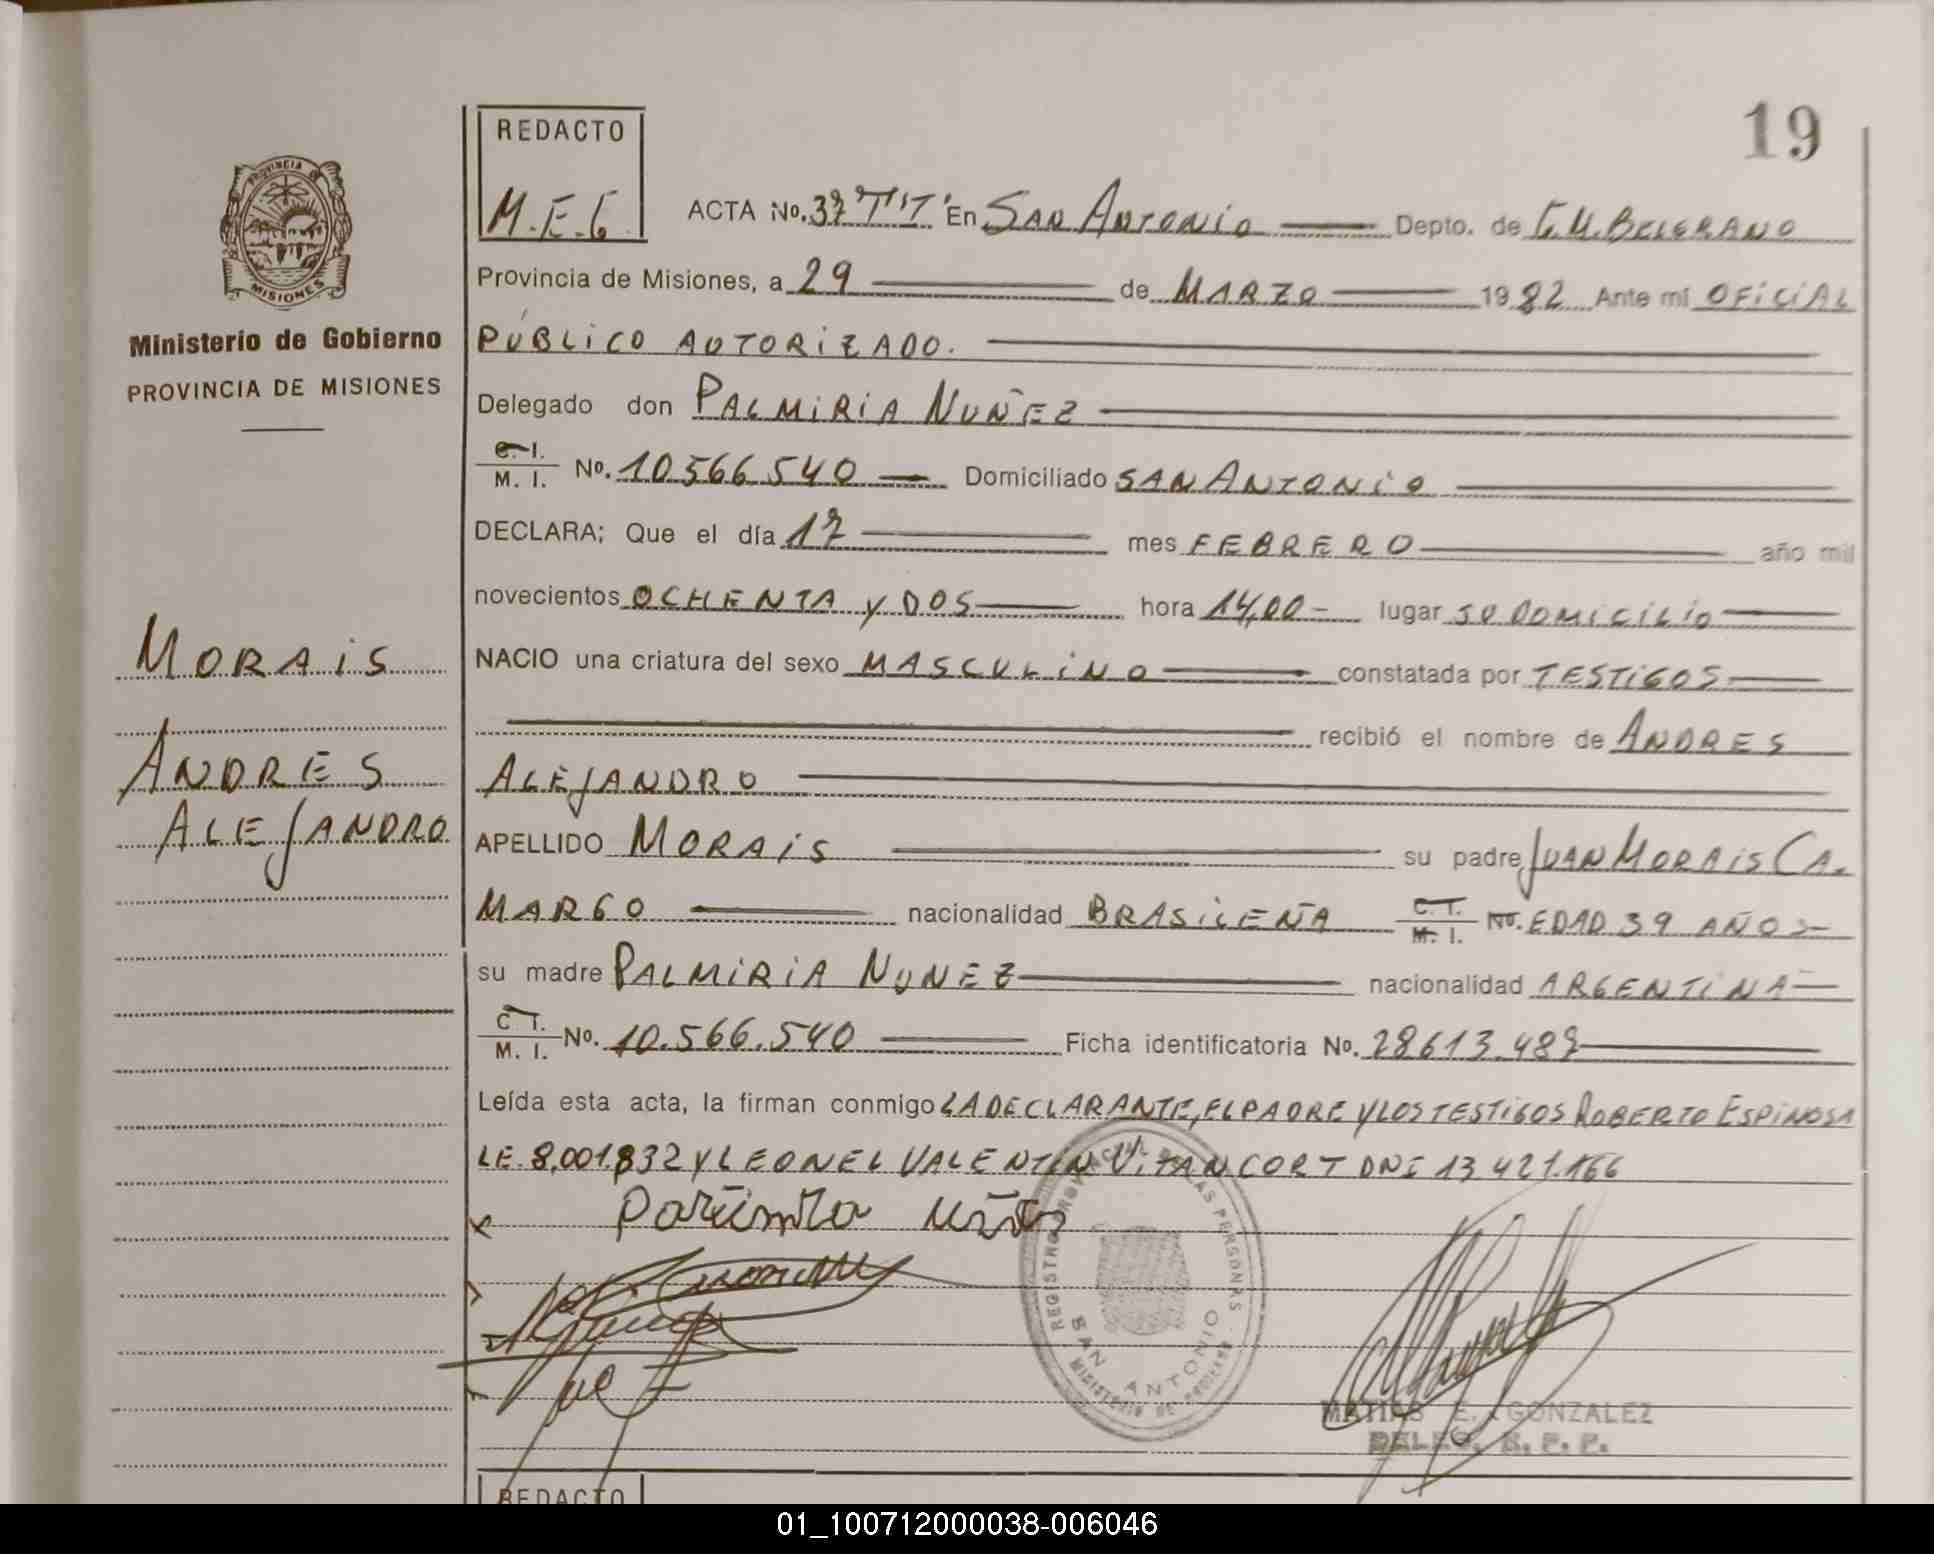 19
REDACTO
M.E.G.
ACTA No. 37 "T" En SAN ANTONIO Depto. de G.M. BELGRANO
PROVINCIA DE
MISIONES
Ministerio de Gobierno
PROVINCIA DE MISIONES
Provincia de Misiones, a 29 de MARZO 1982 Ante mí OFICIAL
PÚBLICO AUTORIZADO.
Delegado don PALMIRIA NUÑEZ
C. I.
M. I. No. 10.566.540 Domiciliado SAN ANTONIO
DECLARA; Que el día 17 mes FEBRERO año mil
novecientos OCHENTA y DOS hora 14,00 lugar SU DOMICILIO
MORAIS
NACIO una criatura del sexo MASCULINO constatada por TESTIGOS
recibió el nombre de ANDRES
ANDRES
ALEJANDRO
ALEJANDRO
APELLIDO MORAIS su padre JUAN MORAIS CA-
MARGO nacionalidad BRASILEÑA C.I. M.I. No. EDAD 39 AÑOS
su madre PALMIRIA NUNEZ nacionalidad ARGENTINA
C I.
M. I. No. 10.566.540 Ficha identificatoria No. 28613.487
Leída esta acta, la firman conmigo LA DECLARANTE, EL PADRE Y LOS TESTIGOS ROBERTO ESPINOSA
LE. 8.001.832 Y LEONEL VALENTIN VITANCORT DNI 13.421.166
REGISTRO PROVINCIAL DE LAS PERSONAS
SAN ANTONIO
MINISTERIO DE GOBIERNO
MATIAS E. GONZALEZ
DELEG. R. P. P.
REDACTO
01_100712000038-006046